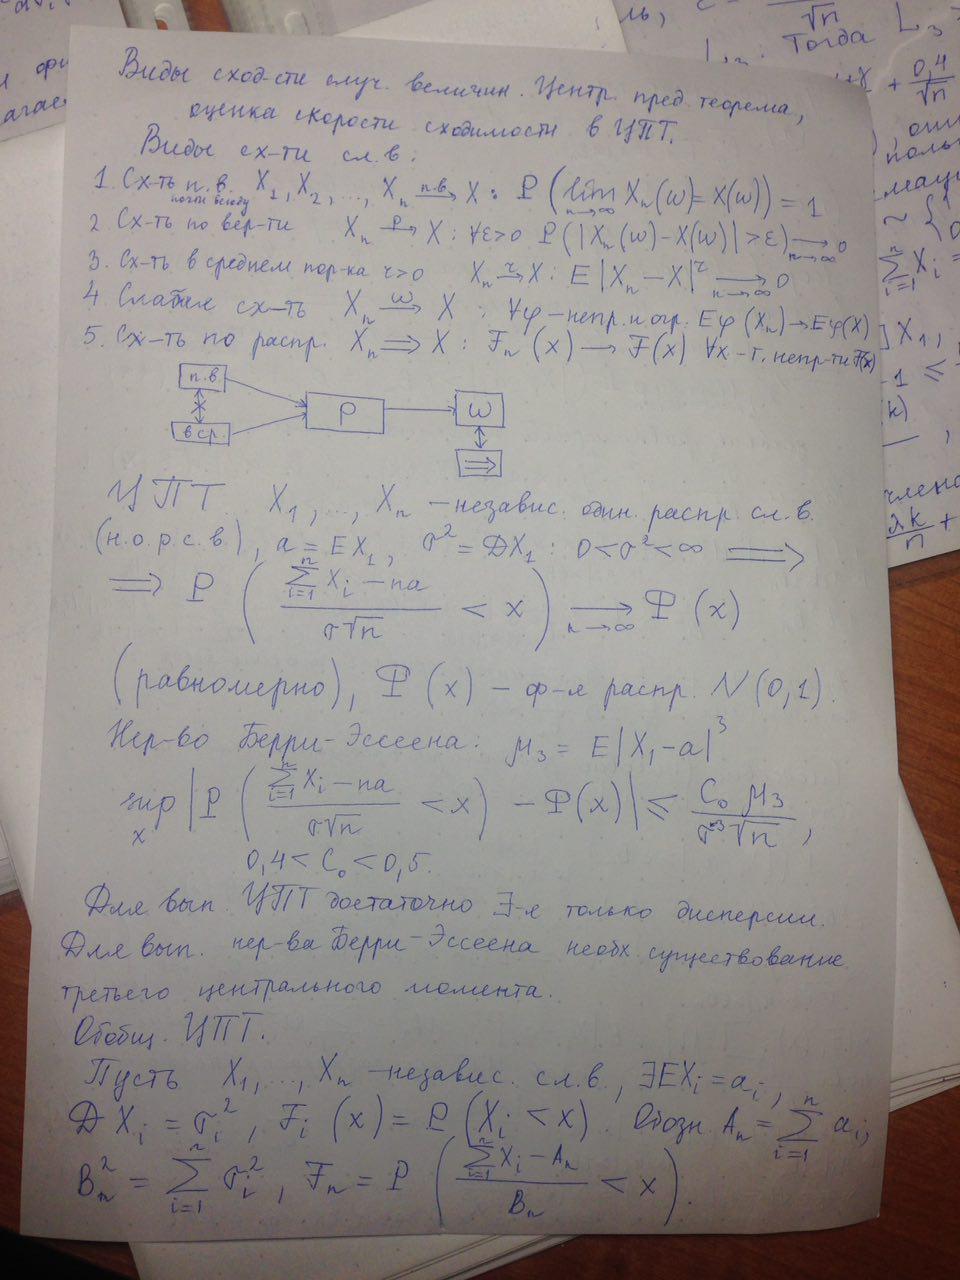 Виды сход-сти случ. величин. Центр. пред. теорема,
оценка скорости сходимости в ЦПТ.
Виды сх-ти сл.в.:
1. Сх-ть п.в. X₁, X₂, ..., Xₙ —п.в.→ X : P(lim Xₙ(ω) = X(ω)) = 1
почти всюду n→∞
2 Сх-ть по вер-ти Xₙ —P→ X : ∀ε>0 P(|Xₙ(ω) – X(ω)| > ε) —n→∞→ 0
3. Сх-ть в среднем пор-ка r>0 Xₙ —r→ X : E|Xₙ – X|^r —n→∞→ 0
4. Слабая сх-ть Xₙ —w→ X : ∀φ – непр. и огр. : Eφ(Xₙ) → Eφ(X)
5. Сх-ть по распр. Xₙ ⇒ X : Fₙ(x) → F(x) ∀x – т. непр-ти F(x)
п.в.
P
w
в ср.
⇒
ЦПТ. X₁, ..., Xₙ – независ. один. распр. сл.в.
(н.о.р.с.в.), a = EX₁, σ² = DX₁ : 0 < σ² < ∞ ⇒
⇒ P( (∑ᵢ₌₁ⁿ Xᵢ – na) / (σ√n) < x ) —n→∞→ Φ(x)
(равномерно), Φ(x) – ф-я распр. N(0,1).
Нер-во Берри-Эссеена: μ₃ = E|X₁ – a|³
sup_x | P( (∑ᵢ₌₁ⁿ Xᵢ – na) / (σ√n) < x ) – Φ(x) | ⩽ C₀ μ₃ / (σ³√n),
0,4 < C₀ < 0,5.
Для вып. ЦПТ достаточно ∃-я только дисперсии.
Для вып. нер-ва Берри-Эссеена необх. существование
третьего центрального момента.
Обобщ. ЦПТ.
Пусть X₁, ..., Xₙ – независ. сл.в., ∃EXᵢ = aᵢ,
DXᵢ = σᵢ², Fᵢ(x) = P(Xᵢ < x). Обозн. Aₙ = ∑ᵢ₌₁ⁿ aᵢ,
Bₙ² = ∑ᵢ₌₁ⁿ σᵢ², Fₙ = P( (∑ᵢ₌₁ⁿ Xᵢ – Aₙ) / Bₙ < x ).